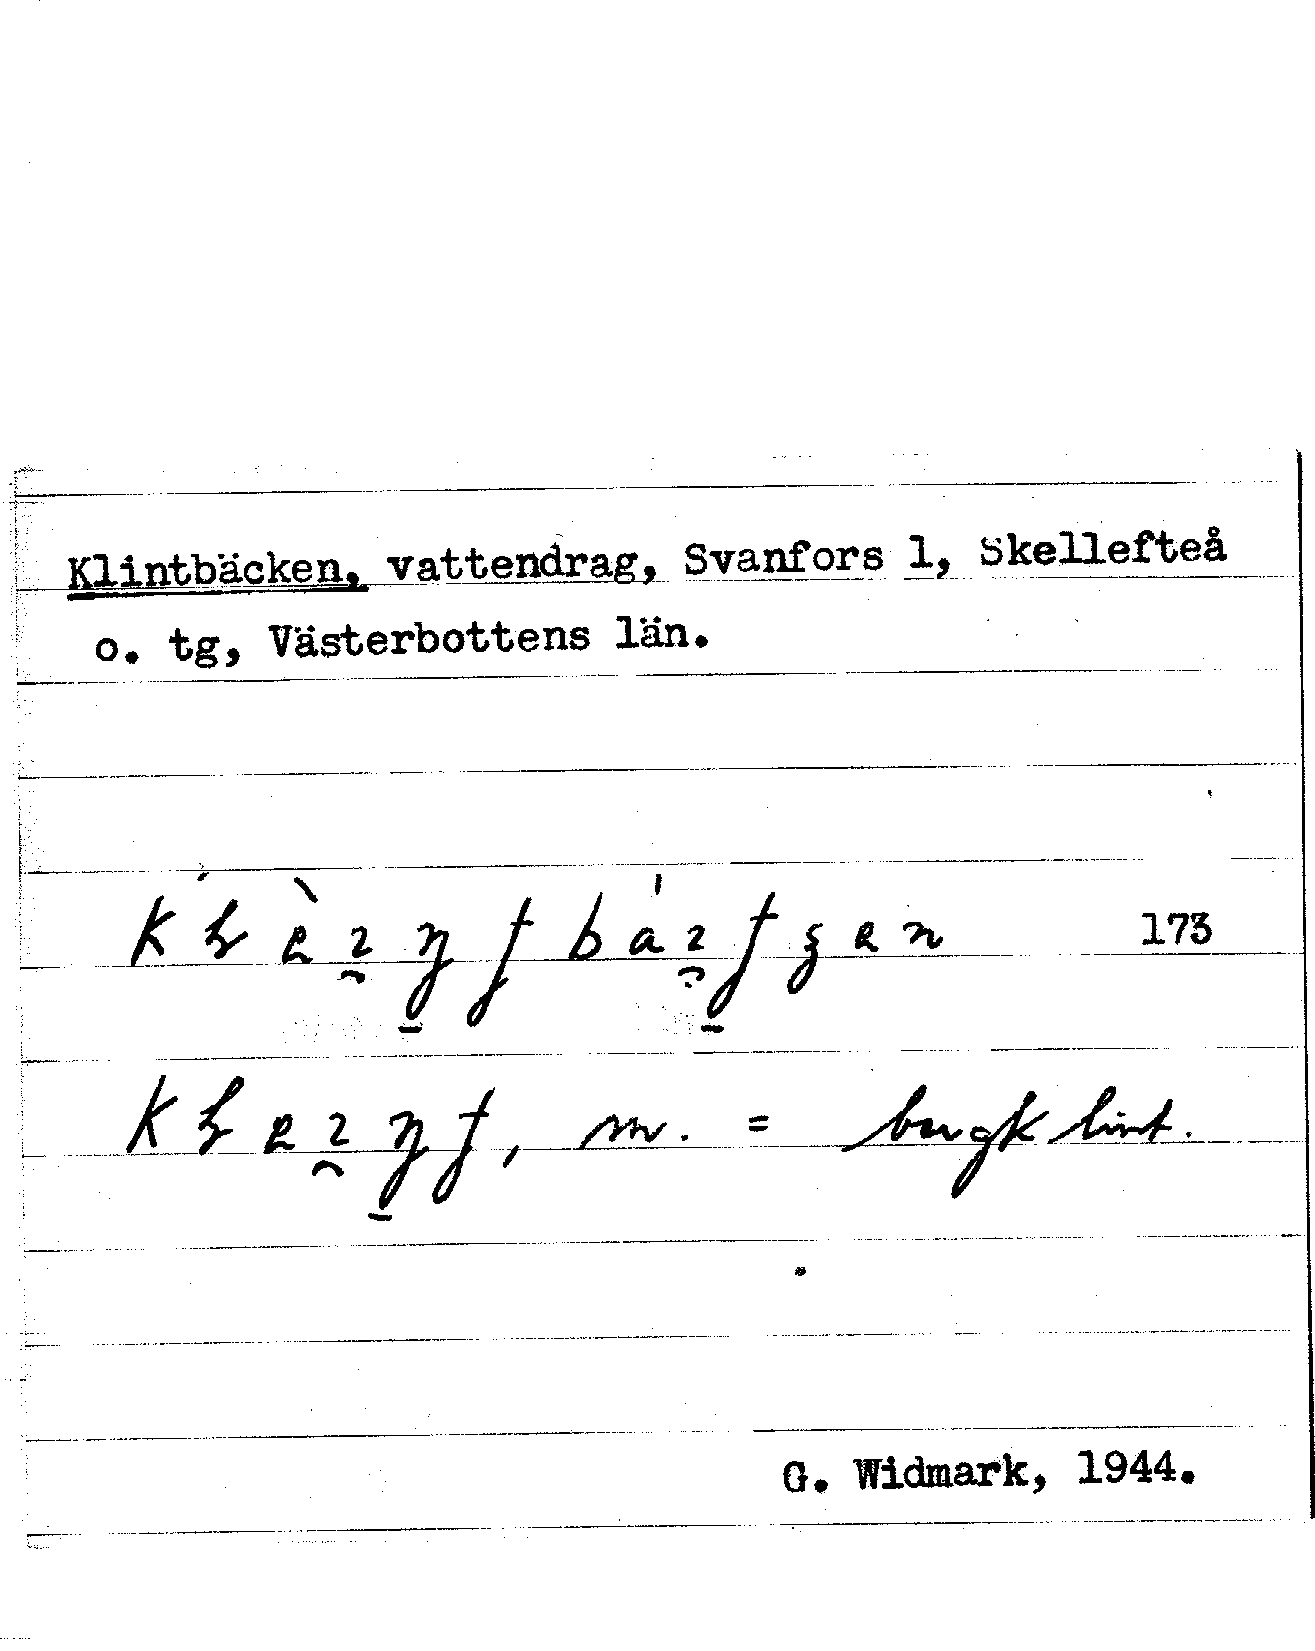 Klintbäcken, vattendrag, Svanfors 1, Skellefteå
o. tg, Västerbottens län.
173
m. = bergklint.
G. Widmark, 1944.